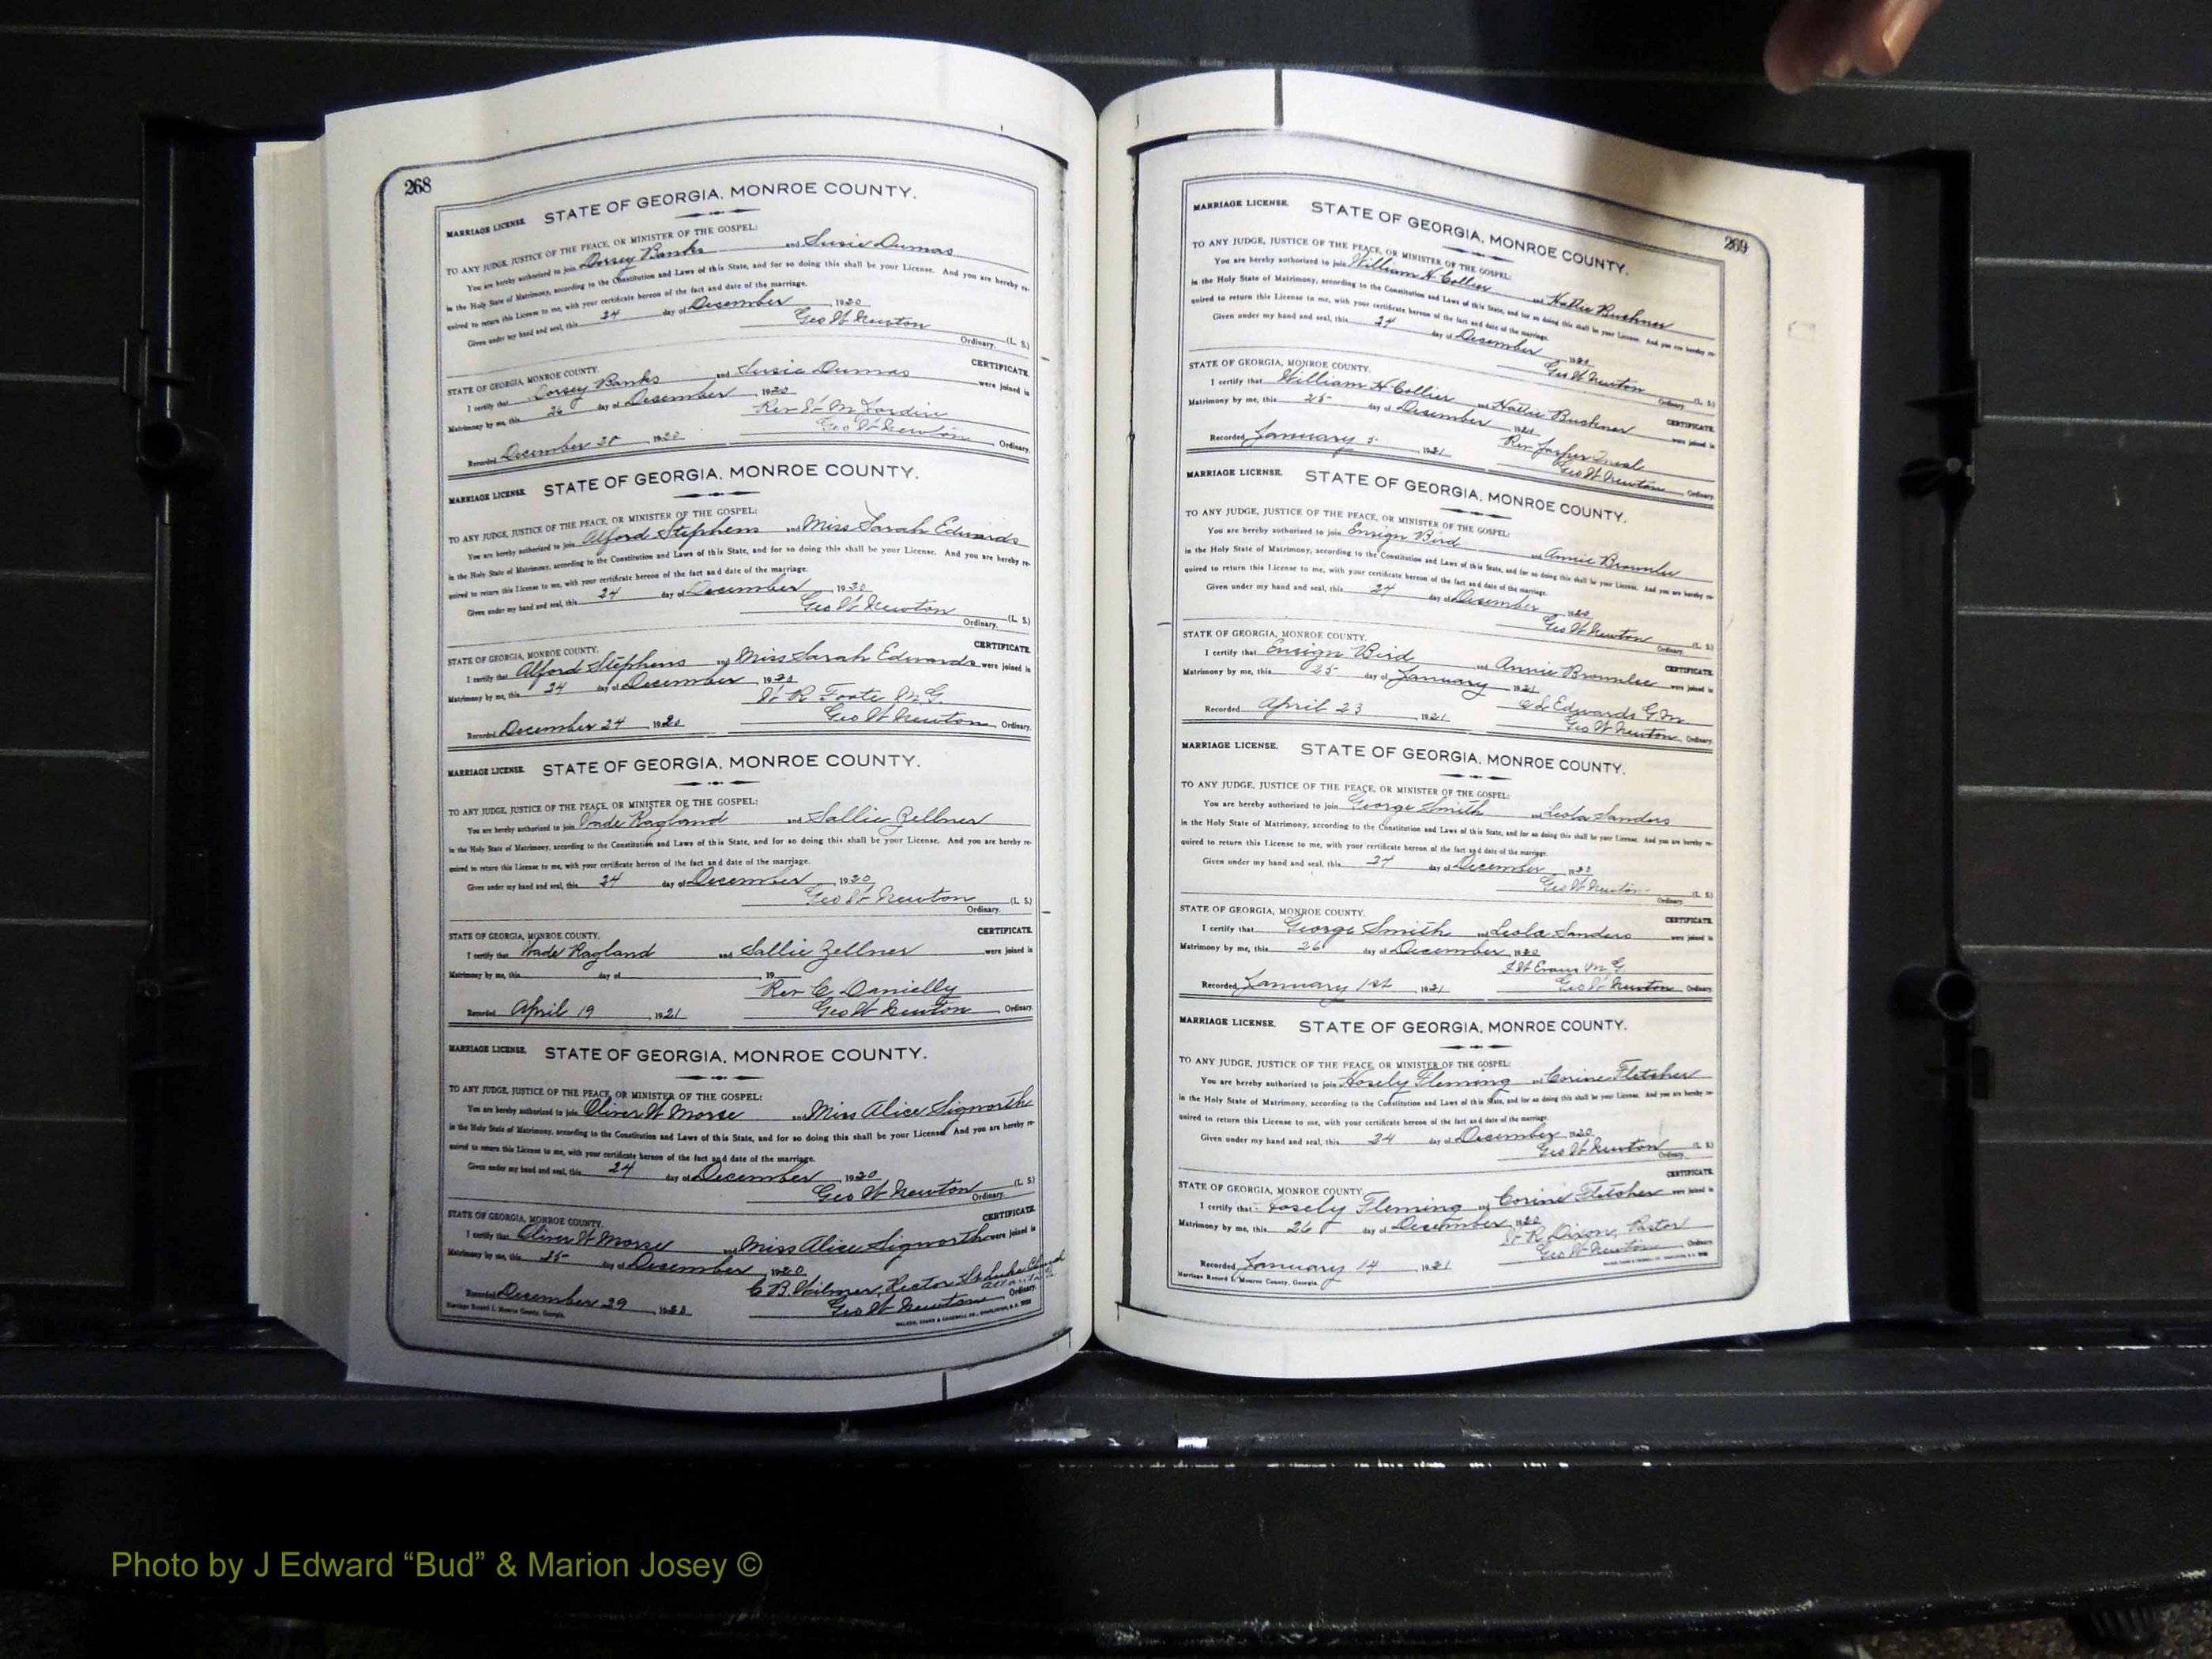 268
STATE OF GEORGIA, MONROE COUNTY.
MARRIAGE LICENSE.
TO ANY JUDGE, JUSTICE OF THE PEACE, OR MINISTER OF THE GOSPEL:
You are hereby authorized to join Dorsey Banks and Susie Dumas
in the Holy State of Matrimony, according to the Constitution and Laws of this State, and for so doing this shall be your License. And you are hereby re-
quired to return this License to me, with your certificate hereon of the fact and date of the marriage.
Given under my hand and seal, this 24 day of December, 1920
Geo W Newton (L. S.)
Ordinary.
STATE OF GEORGIA, MONROE COUNTY. CERTIFICATE.
I certify that Dorsey Banks and Susie Dumas were joined in
Matrimony by me, this 26 day of December, 1920
Rev W M
Recorded December 28, 1920 Geo W Newton Ordinary.
MARRIAGE LICENSE. STATE OF GEORGIA, MONROE COUNTY.
TO ANY JUDGE, JUSTICE OF THE PEACE, OR MINISTER OF THE GOSPEL:
You are hereby authorized to join Alford Stephens and Miss Sarah Edwards
in the Holy State of Matrimony, according to the Constitution and Laws of this State, and for so doing this shall be your License. And you are hereby re-
quired to return this License to me, with your certificate hereon of the fact and date of the marriage.
Given under my hand and seal, this 24 day of December, 1920
Geo W Newton (L. S.)
Ordinary.
STATE OF GEORGIA, MONROE COUNTY. CERTIFICATE.
I certify that Alford Stephens and Miss Sarah Edwards were joined in
Matrimony by me, this 24 day of December, 1920
W R Foote M.G.
Recorded December 24 1920 Geo W Newton, Ordinary.
MARRIAGE LICENSE. STATE OF GEORGIA, MONROE COUNTY.
TO ANY JUDGE, JUSTICE OF THE PEACE, OR MINISTER OF THE GOSPEL:
You are hereby authorized to join Wade Ragland and Sallie Zellner
in the Holy State of Matrimony, according to the Constitution and Laws of this State, and for so doing this shall be your License. And you are hereby re-
quired to return this License to me, with your certificate hereon of the fact and date of the marriage.
Given under my hand and seal, this 24 day of December, 1920
Geo W Newton (L. S.)
Ordinary.
STATE OF GEORGIA, MONROE COUNTY. CERTIFICATE.
I certify that Wade Ragland and Sallie Zellner were joined in
Matrimony by me, this day of , 19
Rev C Danielly
Recorded April 19, 1921 Geo W Newton, Ordinary.
MARRIAGE LICENSE. STATE OF GEORGIA, MONROE COUNTY.
TO ANY JUDGE, JUSTICE OF THE PEACE, OR MINISTER OF THE GOSPEL:
You are hereby authorized to join Oliver W Morse and Miss Alice Sigworth
in the Holy State of Matrimony, according to the Constitution and Laws of this State, and for so doing this shall be your License. And you are hereby re-
quired to return this License to me, with your certificate hereon of the fact and date of the marriage.
Given under my hand and seal, this 24 day of December, 1920
Geo W Newton (L. S.)
Ordinary.
STATE OF GEORGIA, MONROE COUNTY. CERTIFICATE.
I certify that Oliver W Morse and Miss Alice Sigworth were joined in
Matrimony by me, this 25 day of December, 1920
C B Wilmer, Rector St Luke Church
Atlanta
Recorded December 29, 1920 Geo W Newton Ordinary.
Marriage Record L Monroe County, Georgia.
WALKER, EVANS & COGSWELL CO., CHARLESTON, S. C.
269
MARRIAGE LICENSE. STATE OF GEORGIA, MONROE COUNTY.
TO ANY JUDGE, JUSTICE OF THE PEACE, OR MINISTER OF THE GOSPEL:
You are hereby authorized to join William H Collier and Hattie Bushner
in the Holy State of Matrimony, according to the Constitution and Laws of this State, and for so doing this shall be your License. And you are hereby re-
quired to return this License to me, with your certificate hereon of the fact and date of the marriage.
Given under my hand and seal, this 24 day of December, 1920
Geo W Newton (L. S.)
Ordinary.
STATE OF GEORGIA, MONROE COUNTY. CERTIFICATE.
I certify that William H Collier and Hattie Bushner were joined in
Matrimony by me, this 25 day of December, 1920
Rev Jasper
Recorded January 5, 1921 Geo W Newton Ordinary.
MARRIAGE LICENSE. STATE OF GEORGIA, MONROE COUNTY.
TO ANY JUDGE, JUSTICE OF THE PEACE, OR MINISTER OF THE GOSPEL:
You are hereby authorized to join Ensign Bird and Annie Brownlee
in the Holy State of Matrimony, according to the Constitution and Laws of this State, and for so doing this shall be your License. And you are hereby re-
quired to return this License to me, with your certificate hereon of the fact and date of the marriage.
Given under my hand and seal, this 24 day of December, 1920
Geo W Newton (L. S.)
Ordinary.
STATE OF GEORGIA, MONROE COUNTY. CERTIFICATE.
I certify that Ensign Bird and Annie Brownlee were joined in
Matrimony by me, this 25 day of January, 1921
Edwards G.M.
Recorded April 23, 1921 Geo W Newton Ordinary.
MARRIAGE LICENSE. STATE OF GEORGIA, MONROE COUNTY.
TO ANY JUDGE, JUSTICE OF THE PEACE, OR MINISTER OF THE GOSPEL:
You are hereby authorized to join George Smith and Leola Sanders
in the Holy State of Matrimony, according to the Constitution and Laws of this State, and for so doing this shall be your License. And you are hereby re-
quired to return this License to me, with your certificate hereon of the fact and date of the marriage.
Given under my hand and seal, this 24 day of December, 1920
Geo W Newton (L. S.)
Ordinary.
STATE OF GEORGIA, MONROE COUNTY. CERTIFICATE.
I certify that George Smith and Leola Sanders were joined in
Matrimony by me, this 26 day of December, 1920
Evans M.G.
Recorded January 1st, 1921 Geo W Newton Ordinary.
MARRIAGE LICENSE. STATE OF GEORGIA, MONROE COUNTY.
TO ANY JUDGE, JUSTICE OF THE PEACE, OR MINISTER OF THE GOSPEL:
You are hereby authorized to join Hosely Fleming and Corine Fletcher
in the Holy State of Matrimony, according to the Constitution and Laws of this State, and for so doing this shall be your License. And you are hereby re-
quired to return this License to me, with your certificate hereon of the fact and date of the marriage.
Given under my hand and seal, this 24 day of December, 1920
Geo W Newton (L. S.)
Ordinary.
STATE OF GEORGIA, MONROE COUNTY. CERTIFICATE.
I certify that Hosely Fleming and Corine Fletcher were joined in
Matrimony by me, this 26 day of December, 1920
W R Dixon, Pastor
Recorded January 14, 1921 Geo W Newton Ordinary.
Marriage Record L Monroe County, Georgia.
Photo by J Edward “Bud” & Marion Josey ©